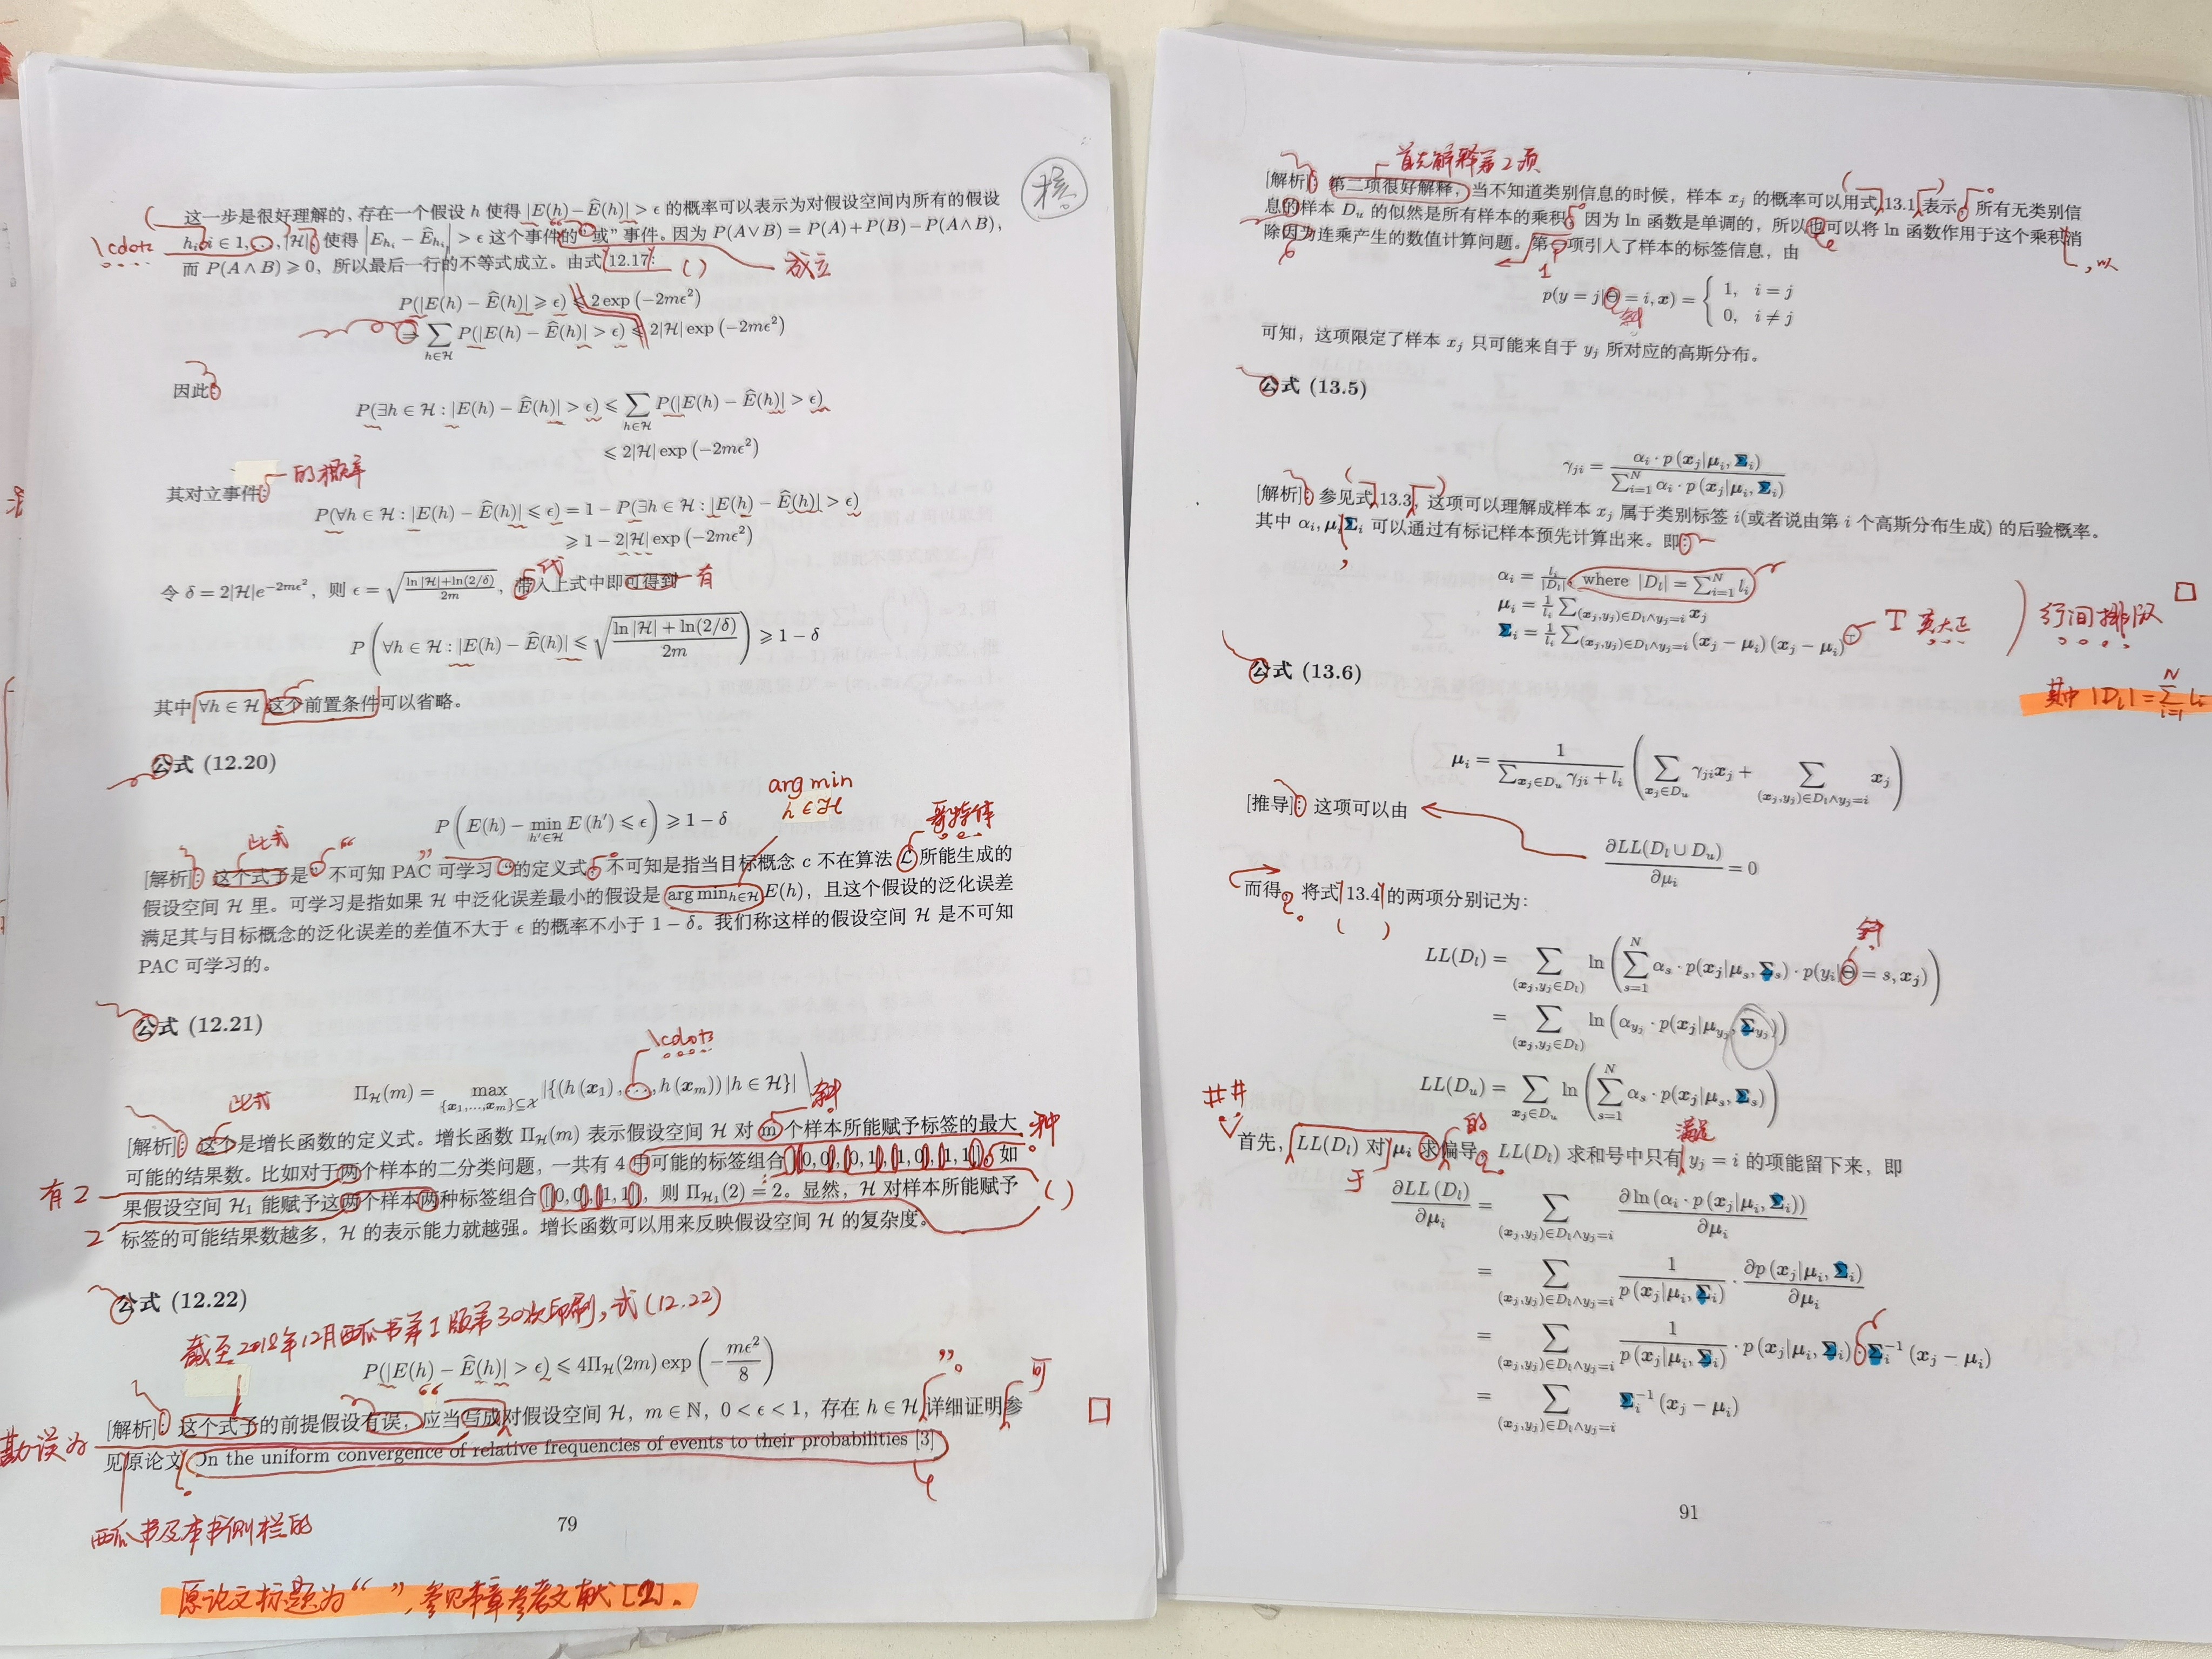 核
这一步是很好理解的，存在一个假设 h 使得 |E(h) − Ê(h)| > ϵ 的概率可以表示为对假设空间内所有的假设
\cdots
h_i, i ∈ 1, ..., |H|, 使得 |E_{h_i} − Ê_{h_i}| > ϵ 这个事件的“或”事件。因为 P(A ∨ B) = P(A) + P(B) − P(A ∧ B),
而 P(A ∧ B) ⩾ 0，所以最后一行的不等式成立。由式 12.17:
( )
成立
P(|E(h) − Ê(h)| ⩾ ϵ) ⩽ 2 exp (−2mϵ²)
⇒ ∑_{h∈H} P(|E(h) − Ê(h)| > ϵ) ⩽ 2|H| exp (−2mϵ²)
因此:
P(∃h ∈ H : |E(h) − Ê(h)| > ϵ) ⩽ ∑_{h∈H} P(|E(h) − Ê(h)| > ϵ)
⩽ 2|H| exp (−2mϵ²)
的概率
其对立事件:
P(∀h ∈ H : |E(h) − Ê(h)| ⩽ ϵ) = 1 − P(∃h ∈ H : |E(h) − Ê(h)| > ϵ)
⩾ 1 − 2|H| exp (−2mϵ²)
代
令 δ = 2|H|e^{−2mϵ²}，则 ϵ = √((ln |H|+ln(2/δ))/2m)，带入上式中即可得到
有
P (∀h ∈ H : |E(h) − Ê(h)| ⩽ √((ln |H| + ln(2/δ))/2m)) ⩾ 1 − δ
其中 ∀h ∈ H 这个前置条件可以省略。
公式 (12.20)
arg min
h ∈ H
P (E(h) − min_{h′∈H} E(h′) ⩽ ϵ) ⩾ 1 − δ
此式
哥特体
[解析]: 这个式子是“不可知 PAC 可学习”的定义式，不可知是指当目标概念 c 不在算法 L 所能生成的
假设空间 H 里。可学习是指如果 H 中泛化误差最小的假设是 arg min_{h∈H} E(h)，且这个假设的泛化误差
满足其与目标概念的泛化误差的差值不大于 ϵ 的概率不小于 1 − δ。我们称这样的假设空间 H 是不可知
PAC 可学习的。
公式 (12.21)
\cdots
Π_H(m) = max_{{x₁,...,x_m}⊆X} |{(h(x₁), ..., h(x_m)) |h ∈ H}|
此式
斜
[解析]: 这个是增长函数的定义式。增长函数 Π_H(m) 表示假设空间 H 对 m 个样本所能赋予标签的最大
种
可能的结果数。比如对于两个样本的二分类问题，一共有 4 中可能的标签组合 [[0, 0], [0, 1], [1, 0], [1, 1]]，如
有2
果假设空间 H₁ 能赋予这两个样本两种标签组合 [[0, 0], [1, 1]]，则 Π_{H₁}(2) = 2。显然，H 对样本所能赋予
( )
2
标签的可能结果数越多，H 的表示能力就越强。增长函数可以用来反映假设空间 H 的复杂度。
公式 (12.22)
截至2018年12月西瓜书第1版第30次印刷，式(12.22)
P(|E(h) − Ê(h)| > ϵ) ⩽ 4Π_H(2m) exp (−mϵ²/8)
可
[解析]: 这个式子的前提假设有误，应当写成对假设空间 H, m ∈ N, 0 < ϵ < 1，存在 h ∈ H 详细证明参
勘误为
见原论文 On the uniform convergence of relative frequencies of events to their probabilities [3]
西瓜书及本书侧栏的
79
原论文标题为“ ”，参见本章参考文献[2]。
首先解释第2项
[解析]: 第二项很好解释，当不知道类别信息的时候，样本 x_j 的概率可以用式 13.1 表示，所有无类别信
息的样本 D_u 的似然是所有样本的乘积，因为 ln 函数是单调的，所以也可以将 ln 函数作用于这个乘积消
除因为连乘产生的数值计算问题。第一项引入了样本的标签信息，由
，以
1
p(y = j|Θ = i, x) = { 1, i = j
0, i ≠ j
斜
可知，这项限定了样本 x_j 只可能来自于 y_j 所对应的高斯分布。
公式 (13.5)
γ_{ji} = (α_i · p(x_j|μ_i, Σ_i)) / (∑_{i=1}^{N} α_i · p(x_j|μ_i, Σ_i))
[解析]: 参见式 13.3，这项可以理解成样本 x_j 属于类别标签 i(或者说由第 i 个高斯分布生成) 的后验概率。
其中 α_i, μ_i Σ_i 可以通过有标记样本预先计算出来。即:
α_i = l_i/|D_l|, where |D_l| = ∑_{i=1}^{N} l_i
μ_i = 1/l_i ∑_{(x_j,y_j)∈D_l∧y_j=i} x_j
Σ_i = 1/l_i ∑_{(x_j,y_j)∈D_l∧y_j=i} (x_j − μ_i)(x_j − μ_i)^T
T 英大正
行间排版
公式 (13.6)
其中 |D_l| = ∑_{i=1}^{N} l_i
μ_i = 1/(∑_{x_j∈D_u} γ_{ji} + l_i) (∑_{x_j∈D_u} γ_{ji}x_j + ∑_{(x_j,y_j)∈D_l∧y_j=i} x_j)
[推导]: 这项可以由
∂LL(D_l ∪ D_u)/∂μ_i = 0
而得，将式 13.4 的两项分别记为：
( )
斜
LL(D_l) = ∑_{(x_j,y_j∈D_l)} ln (∑_{s=1}^{N} α_s · p(x_j|μ_s, Σ_s) · p(y_i|Θ = s, x_j))
= ∑_{(x_j,y_j∈D_l)} ln (α_{y_j} · p(x_j|μ_{y_j}, Σ_{y_j}))
LL(D_u) = ∑_{x_j∈D_u} ln (∑_{s=1}^{N} α_s · p(x_j|μ_s, Σ_s))
##
的
满足
首先，LL(D_l) 对 μ_i 求偏导，LL(D_l) 求和号中只有 y_j = i 的项能留下来，即
于
∂LL(D_l)/∂μ_i = ∑_{(x_j,y_j)∈D_l∧y_j=i} ∂ ln (α_i · p(x_j|μ_i, Σ_i))/∂μ_i
= ∑_{(x_j,y_j)∈D_l∧y_j=i} 1/p(x_j|μ_i, Σ_i) · ∂p(x_j|μ_i, Σ_i)/∂μ_i
= ∑_{(x_j,y_j)∈D_l∧y_j=i} 1/p(x_j|μ_i, Σ_i) · p(x_j|μ_i, Σ_i) · Σ_i^{−1} (x_j − μ_i)
= ∑_{(x_j,y_j)∈D_l∧y_j=i} Σ_i^{−1} (x_j − μ_i)
91